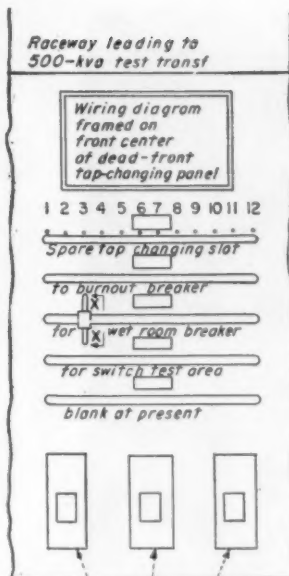 Raceway leading to
500-kva test transf
Wiring diagram
framed on
front center
of dead-front
tap-changing panel
1 2 3 4 5 6 7 8 9 10 11 12
Spare tap changing slot
to burnout breaker
X
for wet room breaker
X
for switch test area
blank at present